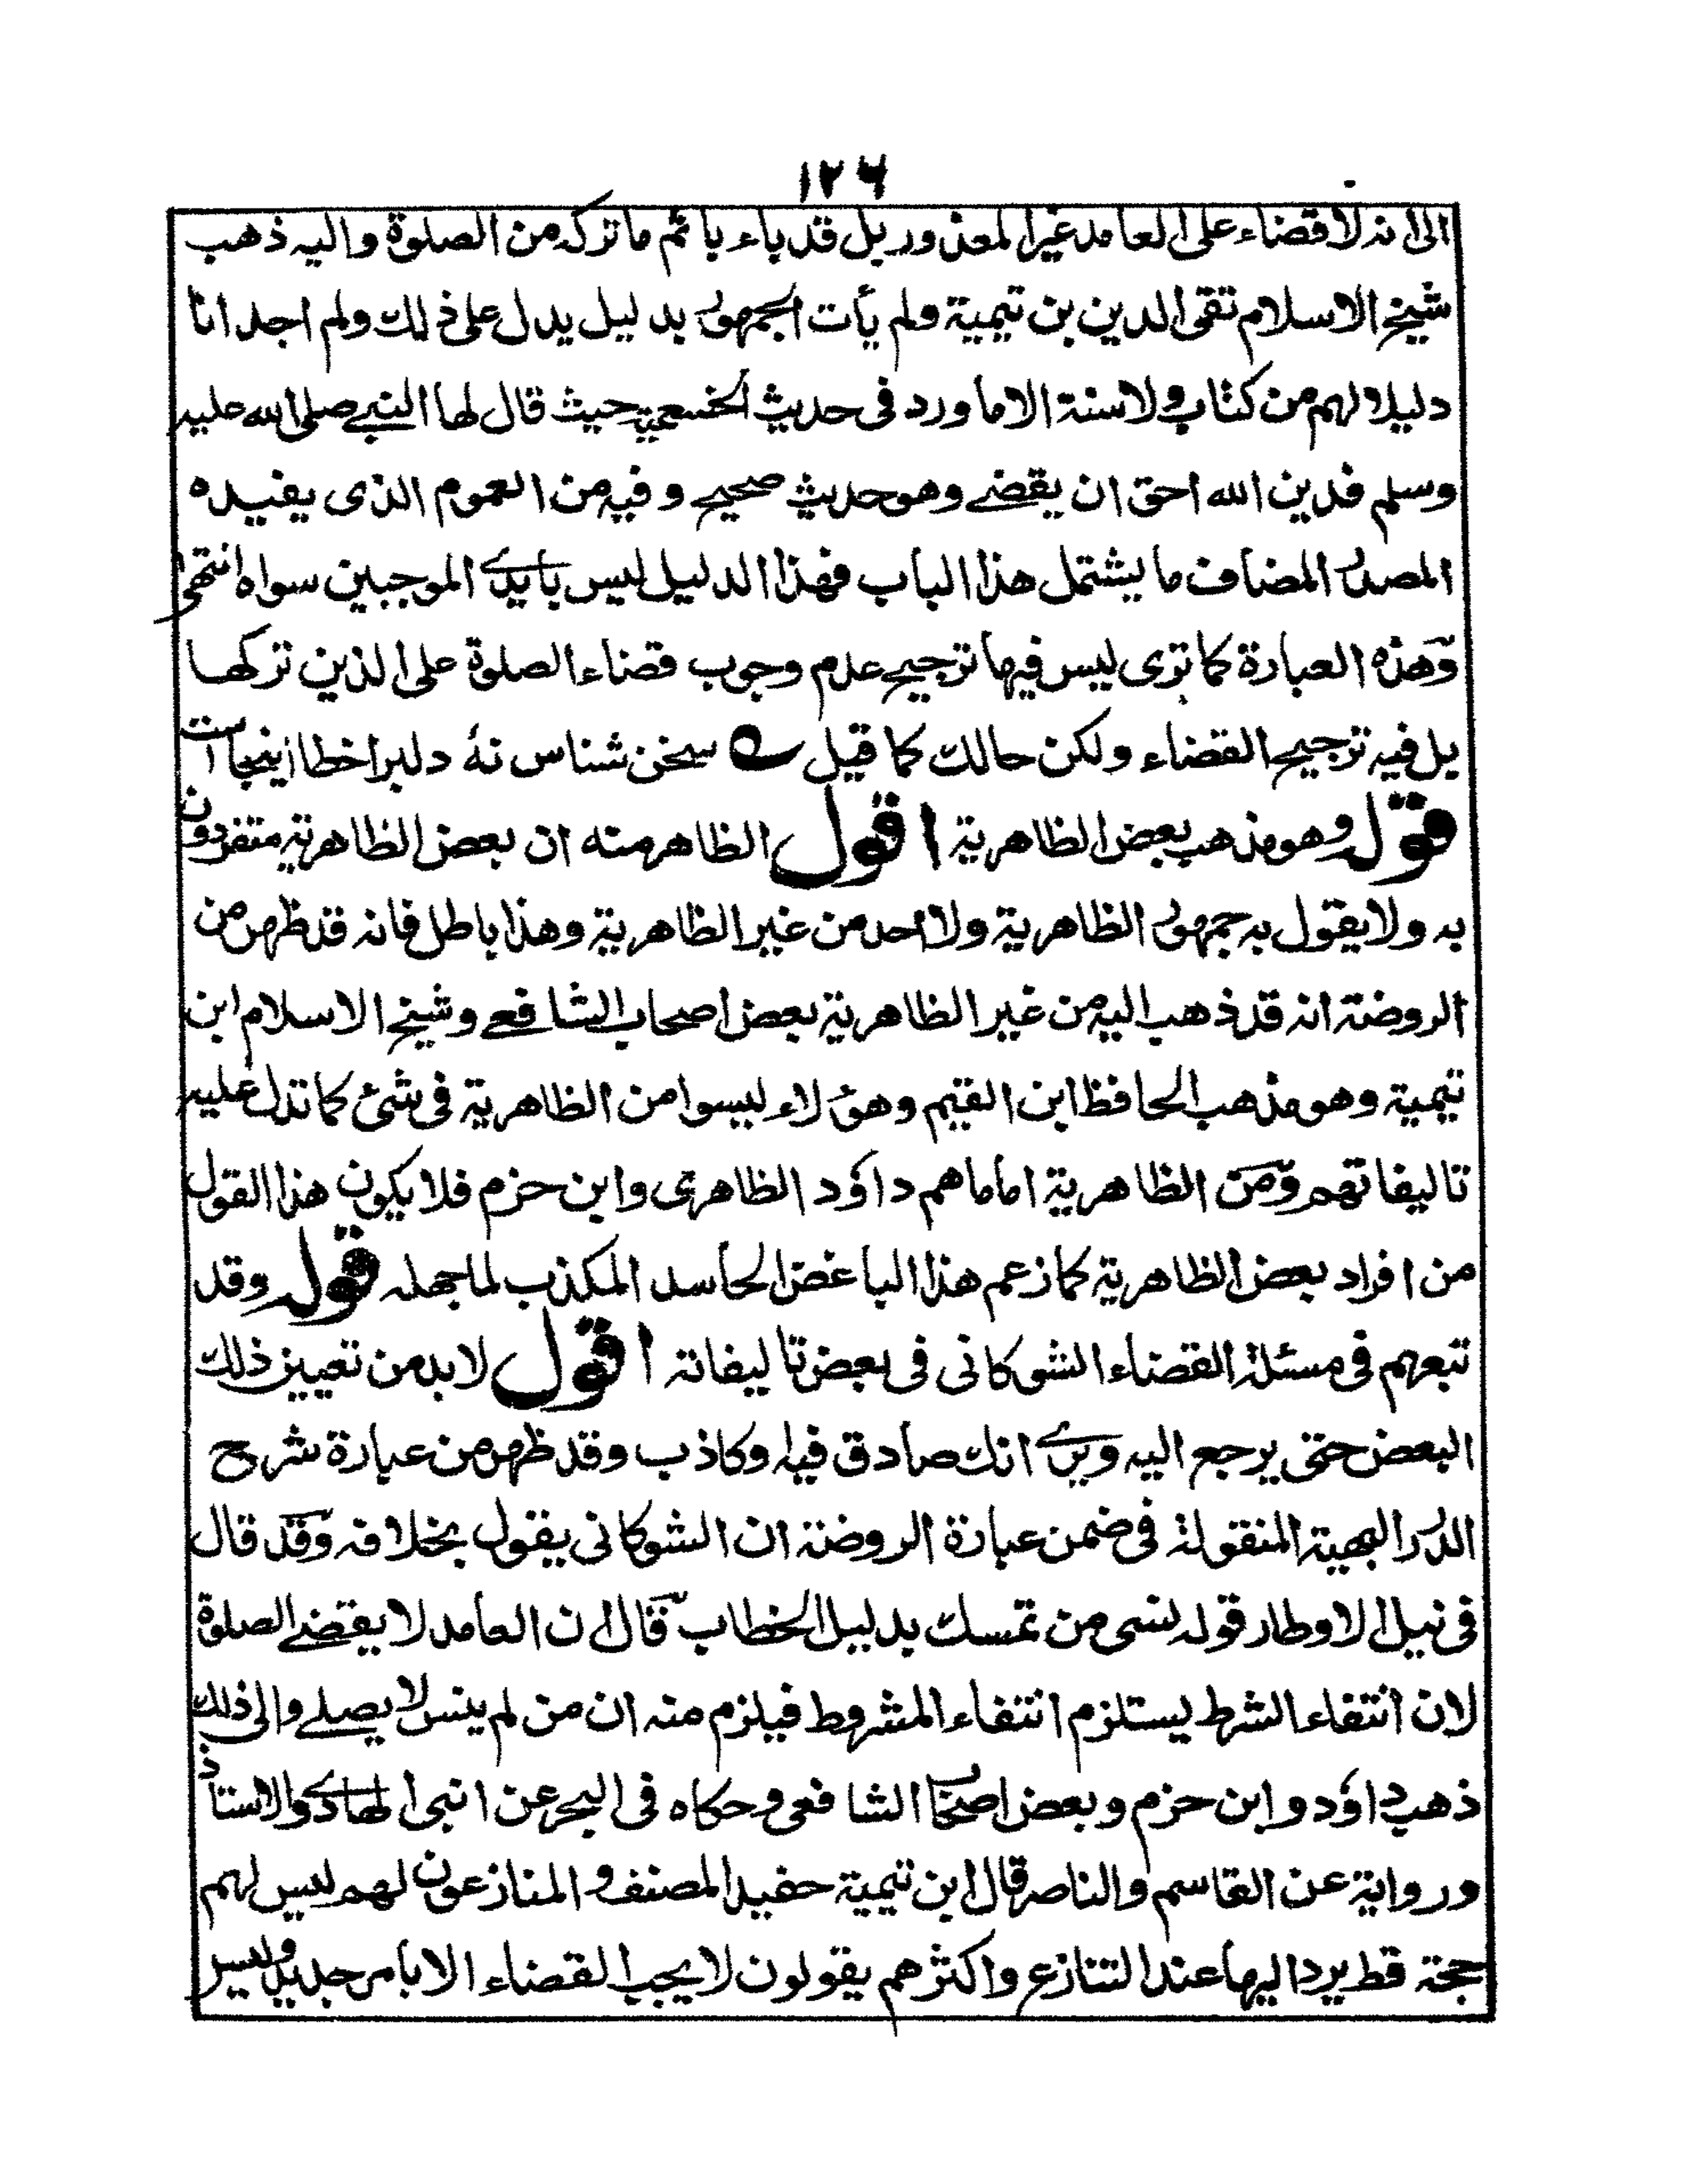 ١٢٦
الى انه لا قضاء على العامد غير المعذور بل قد باء باثم ما تركه من الصلوة واليه ذهب
شيخ الاسلام تقى الدين بن تيمية ولم يأت الجمهور بدليل يدل على ذلك ولم اجد انا
دليلا لهم من كتاب ولا سنة الا ما ورد فى حديث الخثعمية حيث قال لها النبي صلى الله عليه
وسلم فدين الله احق ان يقضے وهو حديث صحيح وفيه من العموم الذى يفيده
المصدر المضاف ما يشتمل هذا الباب فهذا الدليل ليس بايدے الموجبين سواه انتهى
وهذه العبارة كما ترى ليس فيها ترجيح عدم وجوب قضاء الصلوة على الذين تركها
بل فيه ترجيح القضاء ولكن حالك كما قيل ے سخن شناس نهٔ دلبرا خطا اينجا ست
قوله وهو مذهب بعض الظاهرية اقول الظاهر منه ان بعض الظاهرية متفردون
به ولا يقول به جمهور الظاهرية ولا احد من غير الظاهرية وهذا باطل فانه قد ظهر من
الروضة انه قد ذهب اليه من غير الظاهرية بعض اصحاب الشافعے وشيخ الاسلام ابن
تيمية وهو مذهب الحافظ ابن القيم وهؤلاء ليسوا من الظاهرية فى شئ كما تدل عليه
تاليفاتهم ومن الظاهرية اماماهم داؤد الظاهرى وابن حزم فلا يكون هذا القول
من افراد بعض الظاهرية كما زعم هذا الباغض الحاسد المكذب لما جهله قوله وقد
تبعهم فى مسئلة القضاء الشوكانى فى بعض تاليفاته اقول لا بد من تعيين ذلك
البعض حتى يرجع اليه ويرے انك صادق فيه او كاذب وقد ظهر من عبارة شرح
الدرر البهية المنقولة فى ضمن عبارة الروضة ان الشوكانى يقول بخلافه وقد قال
فى نيل الاوطار قوله نسى من تمسك بدليل الخطاب قال ان العامد لا يقضے الصلوة
لان انتفاء الشرط يستلزم انتفاء المشروط فيلزم منه ان من لم ينس لا يصلے والى ذلك
ذهب داؤد وابن حزم وبعض اصحاب الشافعى وحكاه فى البحر عن ابنى الهادے والاستاذ
ورواية عن القاسم والناصر قال ابن تيمية حفيد المصنف والمنازعون لهم ليس لهم
حجة قط يرد اليها عند التنازع واكثرهم يقولون لا يجب القضاء الا بامر جديد وليس